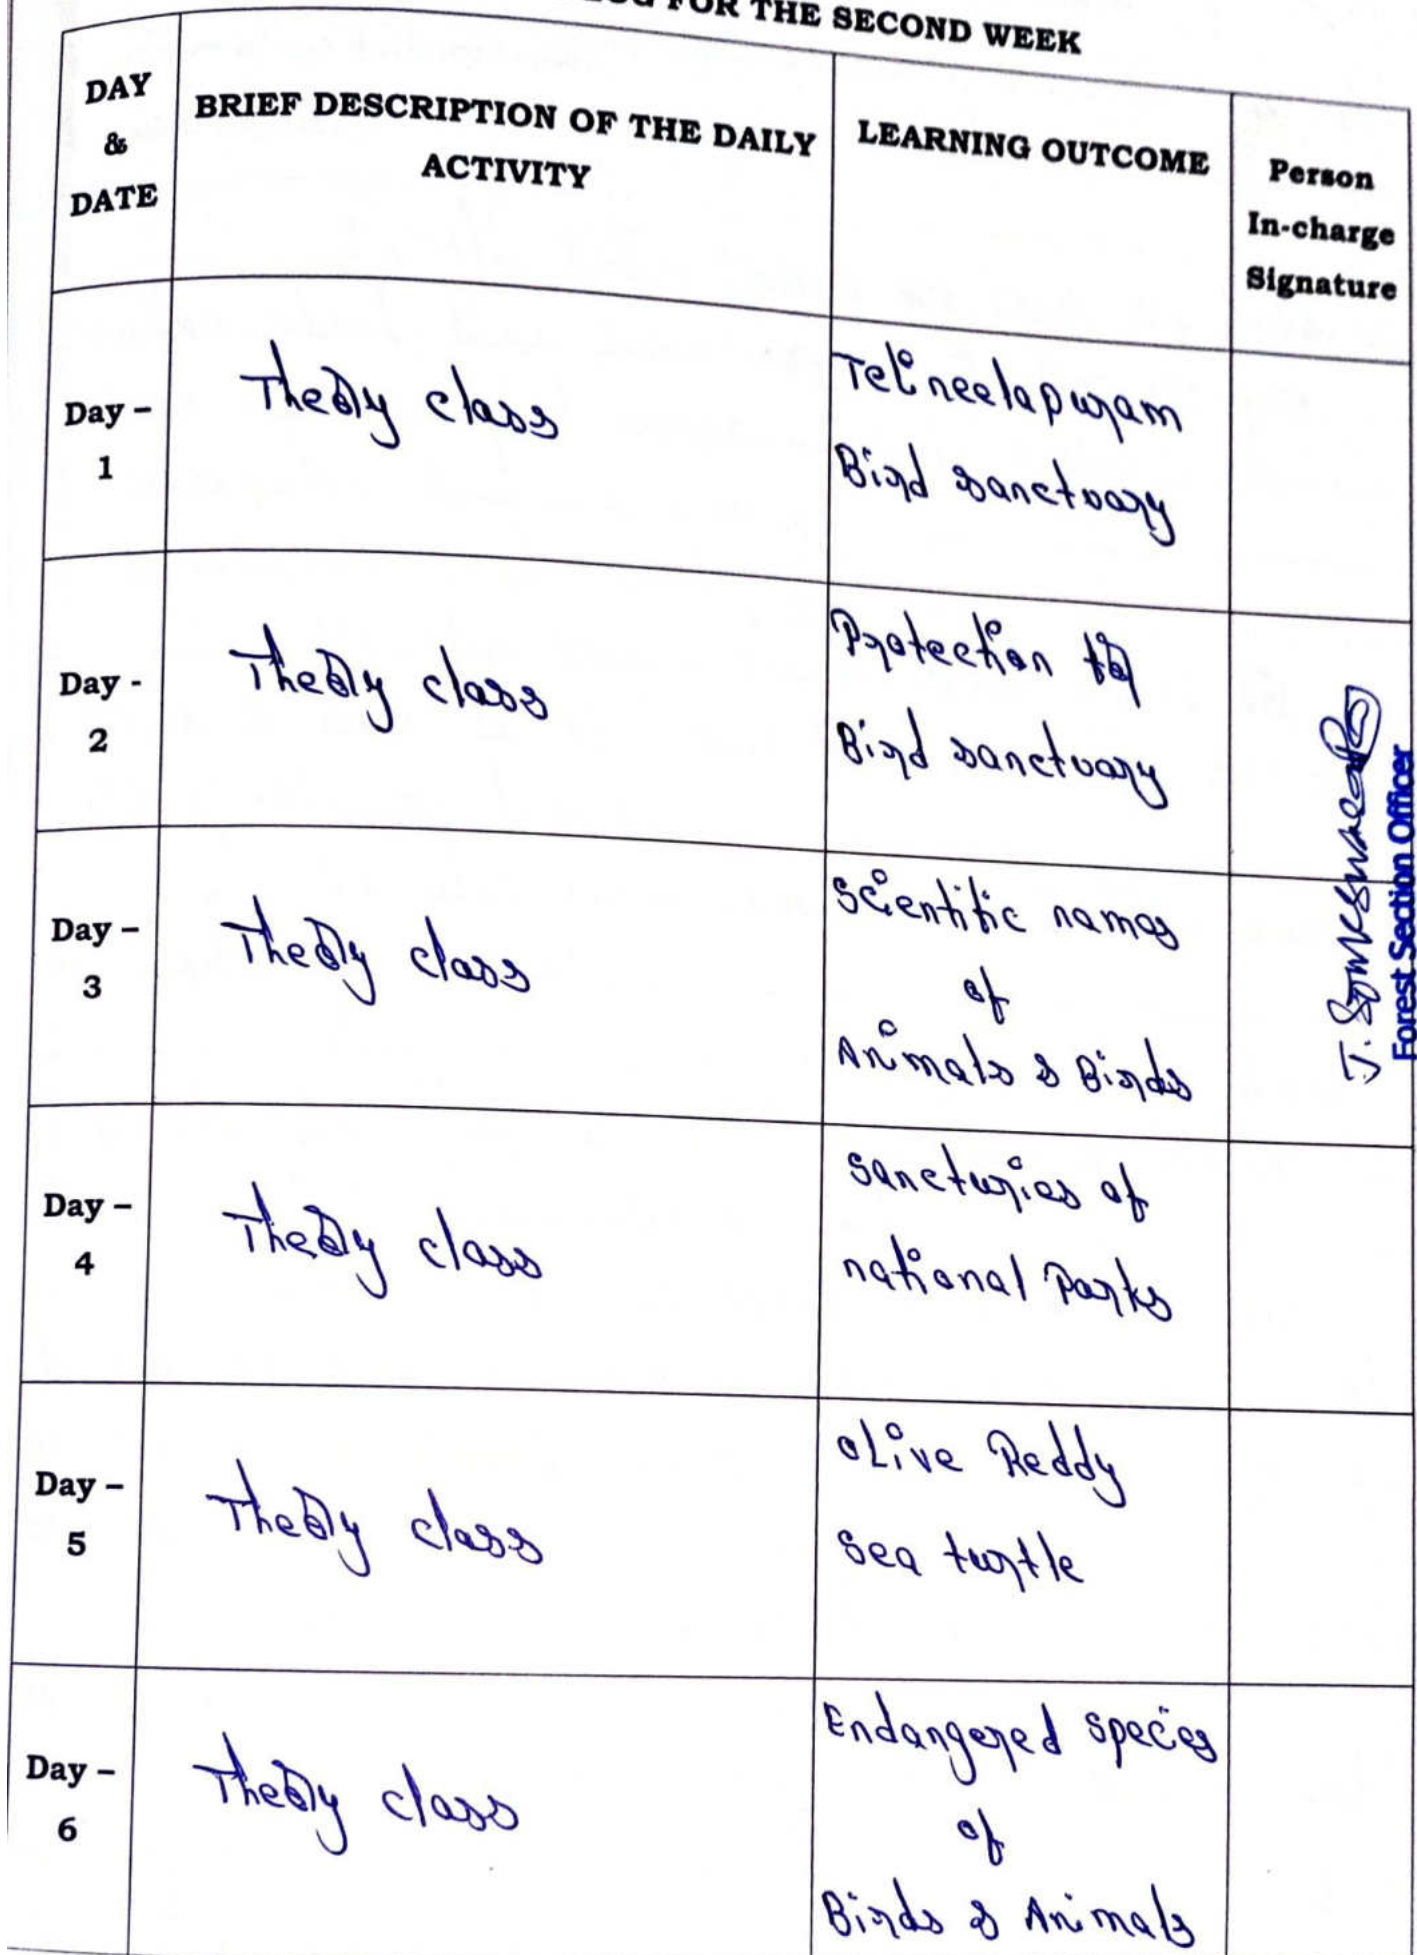 FOR THE SECOND WEEK
DAY
&
DATE
BRIEF DESCRIPTION OF THE DAILY
ACTIVITY
LEARNING OUTCOME
Person
In-charge
Signature
Day –
1
Theory class
Telineelapuram
Bird sanctuary
Day -
2
Theory class
Protection for
Bird sanctuary
Day –
3
Theory class
Scientific names
of
Animals & Birds
Day –
4
Theory class
Sancturies of
national Parks
Day –
5
Theory class
olive Reddy
Sea turtle
Day –
6
Theory class
Endangered species
of
Birds & Animals
J.
Forest Section Officer